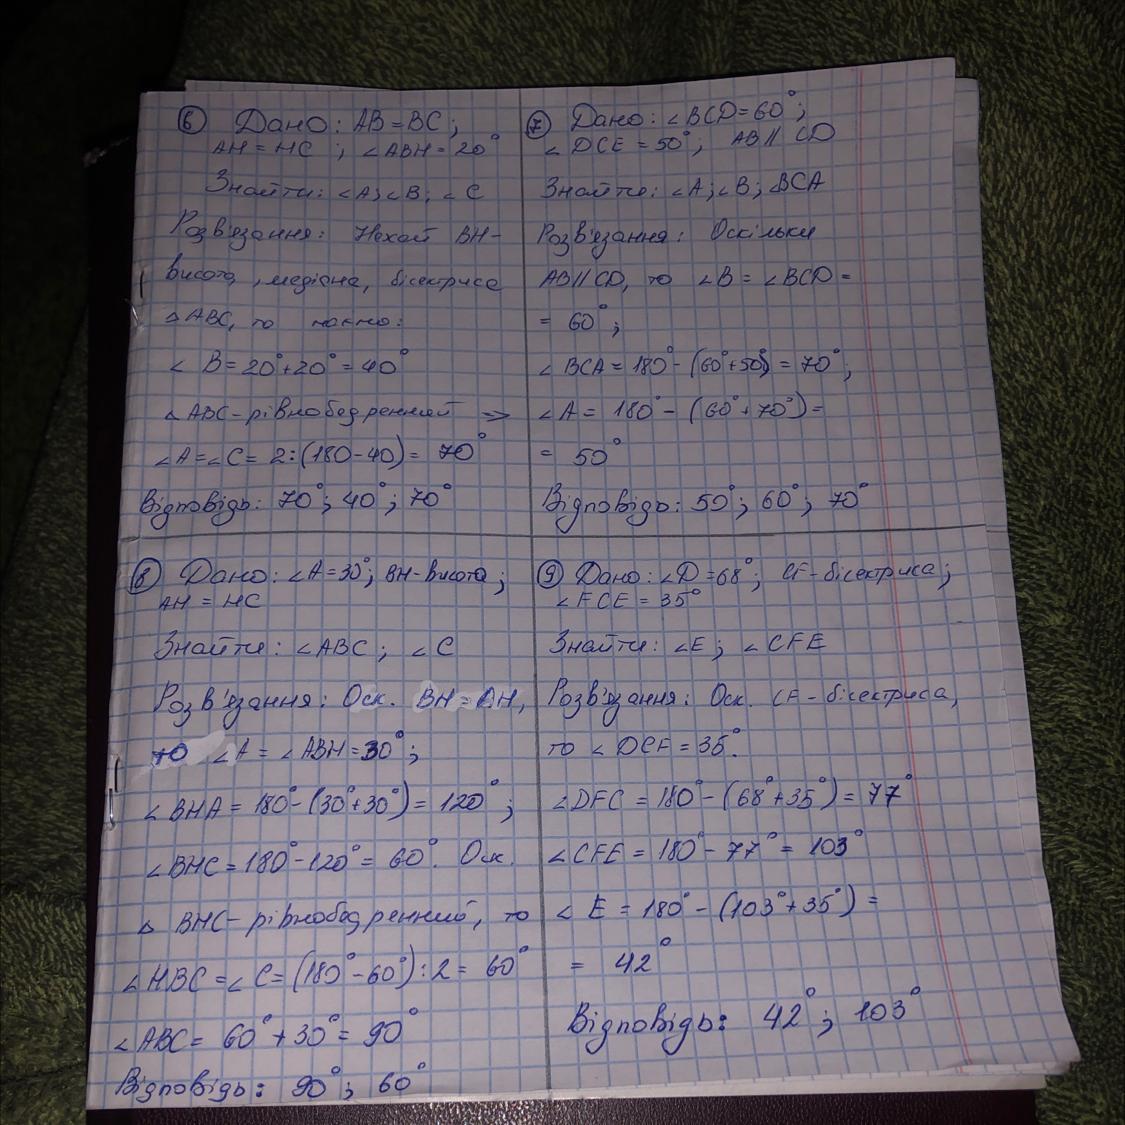 6 Дано: AB=BC;
AH=HC; ∠ABH=20°
Знайти: ∠A; ∠B; ∠C
Розв'язання: Нехай BH-
висота, медіана, бісектриса
△ABC, то маємо:
∠B=20°+20°=40°
△ABC-рівнобедренний =>
∠A=∠C= 2:(180-40)= 70°
Відповідь: 70°; 40°; 70°
7 Дано: ∠BCD=60°;
∠DCE=50°; AB||CD
Знайти: ∠A; ∠B; ∠BCA
Розв'язання: Оскільки
AB||CD, то ∠B=∠BCD=
= 60°;
∠BCA=180°-(60°+50°)=70°;
∠A= 180°-(60°+70°)=
= 50°
Відповідь: 50°; 60°; 70°
8 Дано: ∠A=30°; BH-висота;
AH=HC
Знайти: ∠ABC; ∠C
Розв'язання: Оск. BH=AH,
то ∠A=∠ABH=30°;
∠BHA=180°-(30°+30°)=120°;
∠BHC=180°-120°=60°. Оск.
△BHC-рівнобедренний, то
∠HBC=∠C=(180°-60°):2=60°
∠ABC= 60°+30°=90°
Відповідь: 90°; 60°
9 Дано: ∠D=68°; CF-бісектриса;
∠FCE=35°
Знайти: ∠E; ∠CFE
Розв'язання: Оск. CF-бісектриса,
то ∠DCF=35°.
∠DFC=180°-(68°+35°)=77°
∠CFE=180°-77°=103°
∠E=180°-(103°+35°)=
= 42°
Відповідь: 42°; 103°